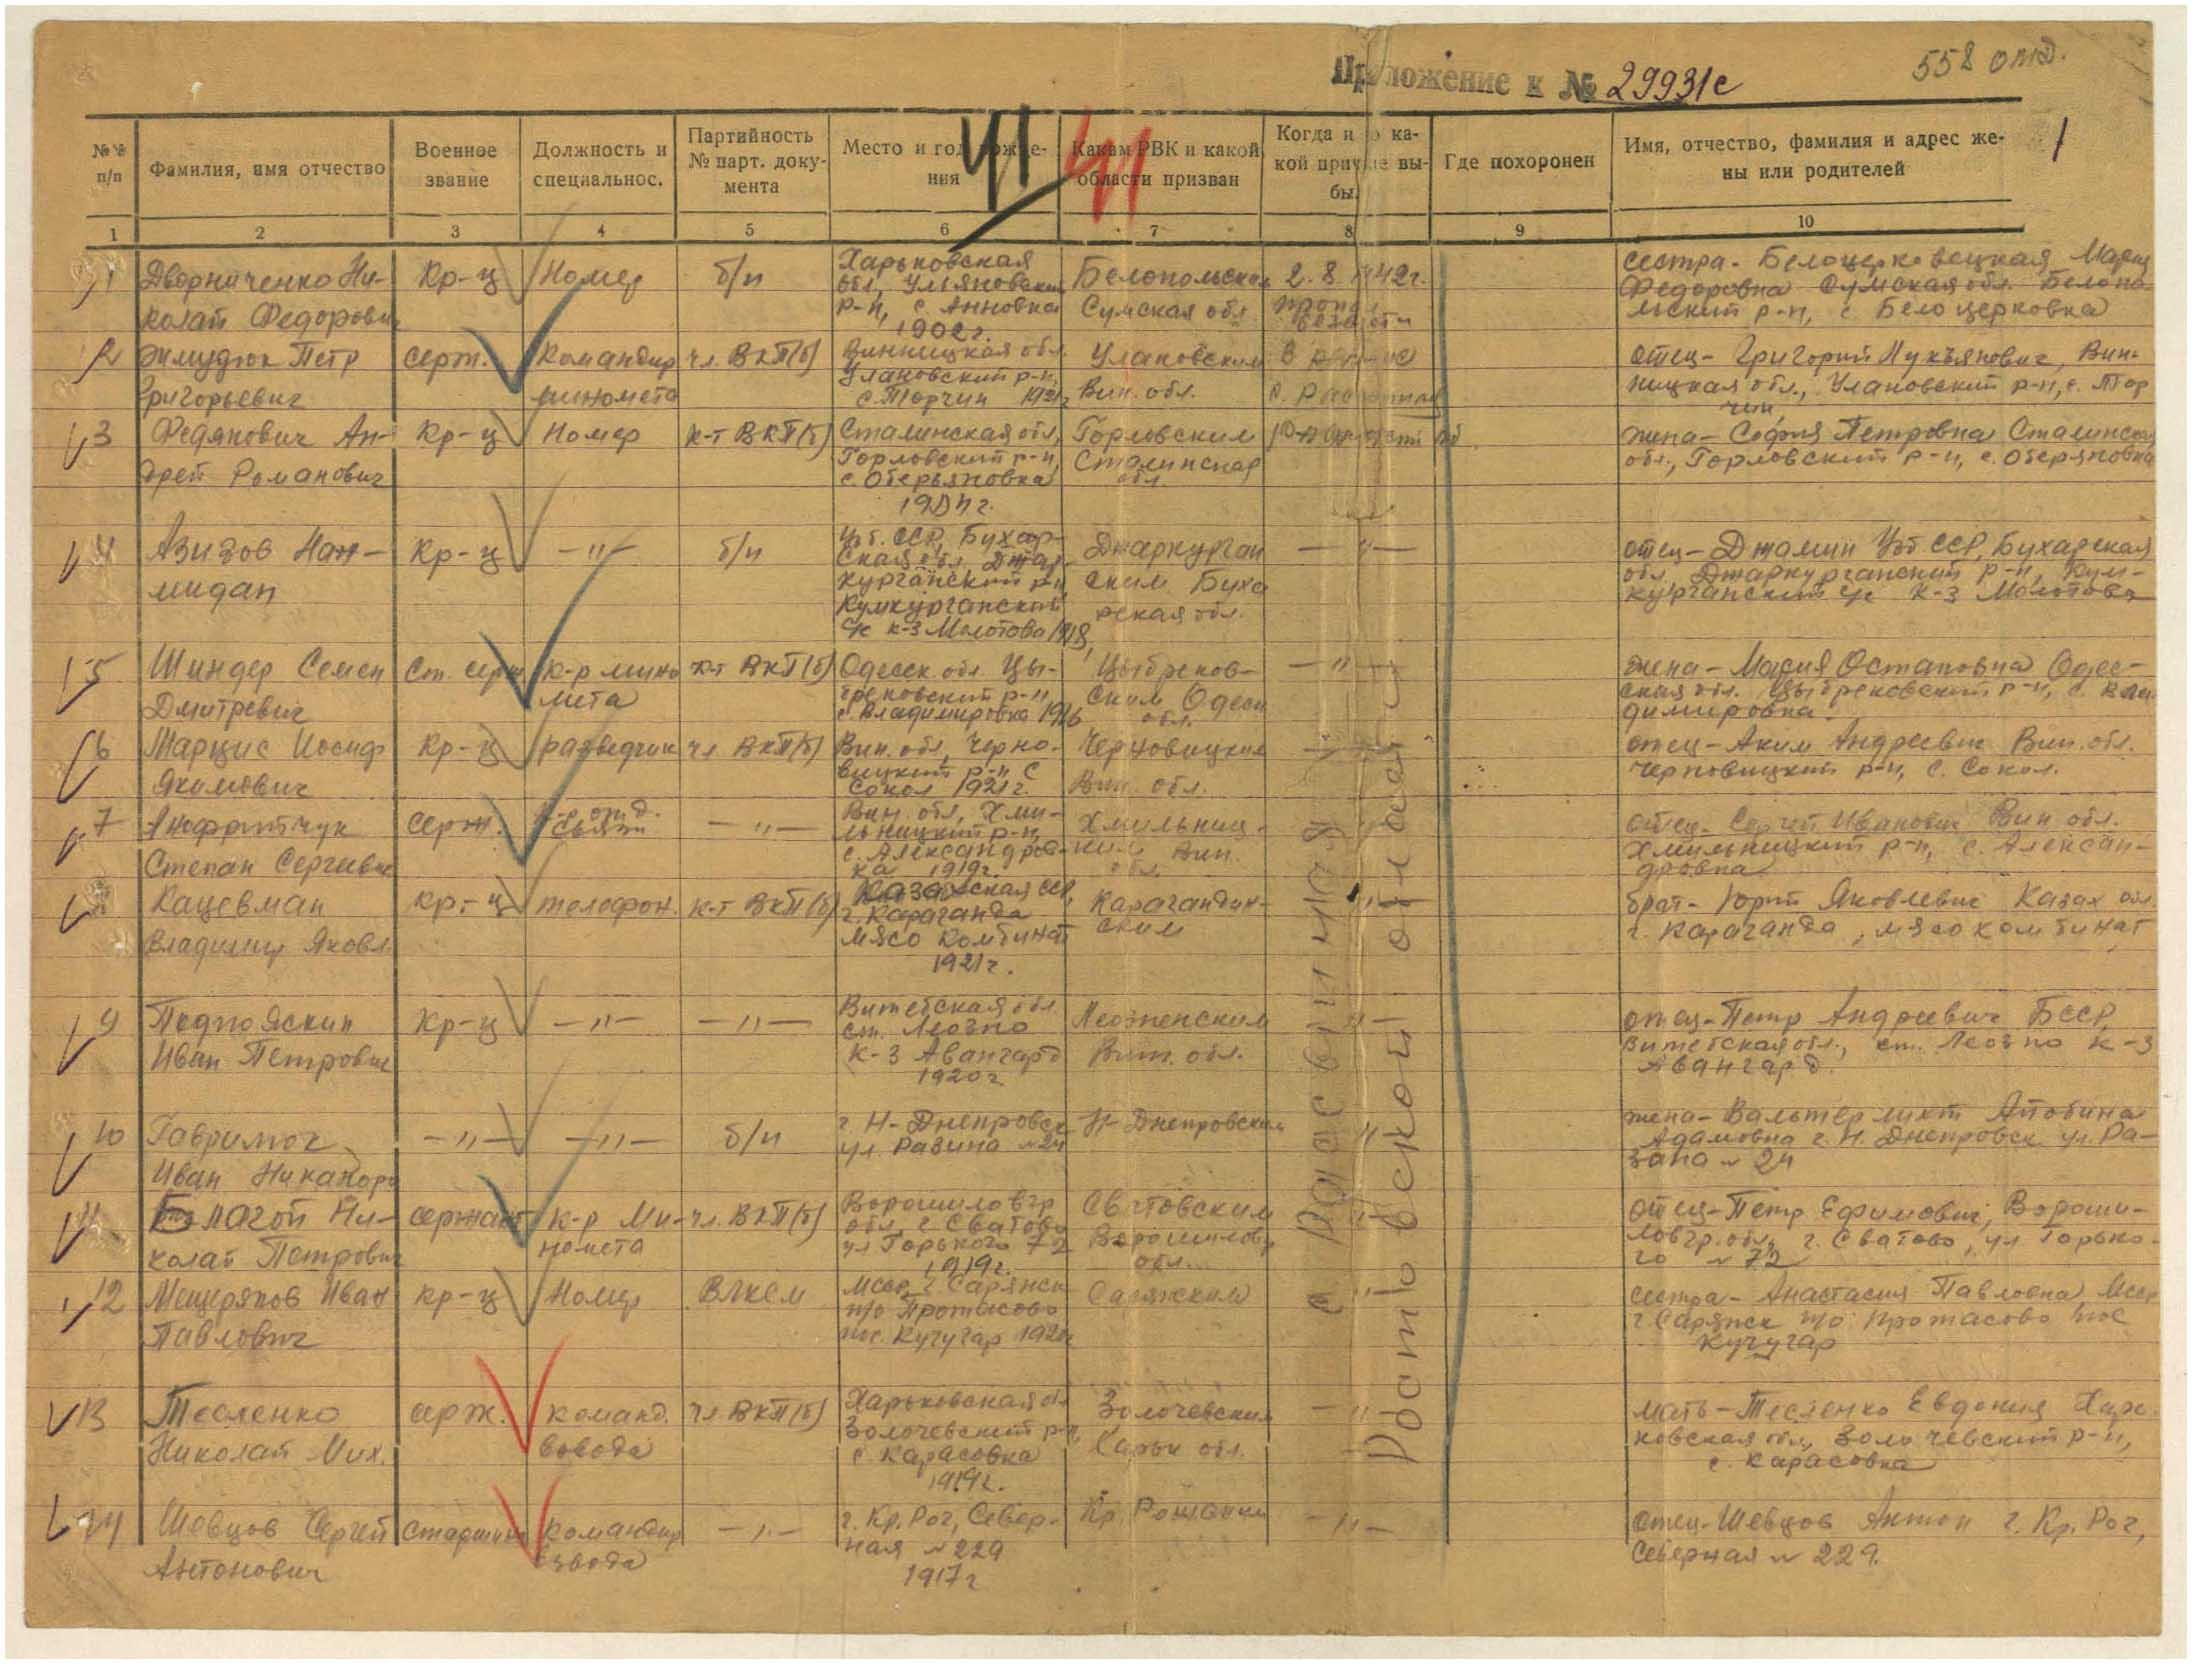 Приложение к № 29931с
558 отд.
1
№№ п/п
Фамилия, имя отчество
Военное звание
Должность и специальнос.
Партийность № парт. доку- мента
Место и год рожде- ния
Каким РВК и какой области призван
Когда и по ка- кой причине вы- был
Где похоронен
Имя, отчество, фамилия и адрес же- ны или родителей
41
41
1 2 3 4 5 6 7 8 9 10
1 Дворниченко Ни-
колай Федорович
Кр-ц
Номер
б/п
Харьковская
обл, Ульяновский
р-н, с. Анновка
1902г.
Белопольским
Сумская обл
2.8.1942г.
пропал
без вести
сестра - Белоцерковецкая Мария
Федоровна Сумская обл. Белопо
льский р-н, с Белоцерковка
2 Жмудюк Петр
Григорьевич
серж.
Командир
миномета
чл. ВКП(б)
Винницкая обл.
Улановский р-н,
с. Торчин 1921г
Улановским
Вин. обл.
отец - Григорий Лукьянович, Вин-
ницкая обл., Улановский р-н, с. Тор
чин
3 Федянович Ан-
дрей Романович
Кр-ц
Номер
к-т ВКП(б)
Сталинская обл,
Горловский р-н,
с. Оберьяновка
Горловским
Сталинская
обл.
жена - София Петровна Сталинская
обл., Горловский р-н, с. Оберяновка
4 Азизов Наж-
мидан
Кр-ц
-"-
б/п
Узб. ССР, Бухар-
ская обл Джар-
курганский р-н
Кумкурганский
с/с к-з Молотова 1918,
Джаркурган
ским Буха
рская обл.
-"-
отец - Джамин Узб ССР, Бухарская
обл Джаркурганский р-н, Кум-
курганский с/с к-з Молотова
5 Шиндер Семен
Дмитревич
Ст. серж
к-р мино
мета
к-т ВКП(б)
Одесск. обл. Цы-
бреновский р-н
с. Владимировка 1916
Цыбренов-
ским Одесск
обл.
-"-
жена - Мария Остаповна Одес-
ская обл. Цыбреновский р-н, с. Вла
димировка.
6 Марцис Иосиф
Якимович
Кр-ц
разведчик
чл. ВКП(б)
Вин. обл, Черно-
вицкий р-н с
Сокол 1921г.
Черновицким
Вин. обл.
отец - Аким Андреевич Вин. обл.
Черновицкий р-н, с. Сокол.
7 Анофрийчук
Степан Сергеевич
серж.
отд.
связи
-"-
Вин. обл, Хми-
льницкий р-н,
с. Александров-
ка 1919г.
Хмильниц-
ким Вин.
обл.
отец - Сергей Иванович Вин обл.
Хмильницкий р-н, с. Алексан-
дровка
Кацевман
Владимир Яковл.
Кр-ц
телефон.
к-т ВКП(б)
Казахская ССР,
г. Караганда
мясо комбинат
1921г.
Карагандин-
ским
брат - Юрий Яковлевич Казах обл.
г. Караганда, мясокомбинат
9 Подпояскин
Иван Петрович
Кр-ц
-"-
-"-
Витебская обл
ст. Леозно
к-з Авангард
1920г.
Леозненским
Вит. обл.
отец - Петр Андреевич БССР,
Витебская обл., ст. Леозно к-з
Авангард.
10 Гаврилюк
Иван Никанор
-"-
-"-
б/п
г. Н-Днепровск
ул. Разина №24
Н-Днепровским
жена - Вальтер лихт
Адамовна г. Н. Днепровск ул. Ра-
зина №24
11 Благой Ни-
колай Петрович
сержант
к-р Ми-
номета
чл. ВКП(б)
Ворошиловгр
обл, г. Сватово
ул Горького 72
1919г.
Сватовским
Ворошиловгр
обл.
отец - Петр Ефимович, Вороши-
ловгр. обл, г. Сватово, ул Горько-
го №72
12 Мещеряков Иван
Павлович
кр-ц
Номер
ВЛКСМ
Мсср, г. Сарянск
п/о Протасово
пос. Кучугар
Сарянским
сестра - Анастасия Павловна Мсср
г Сарянск п/о Протасово пос
Кучугар
13 Тесленко
Николай Мих.
серж.
команд.
взвода
чл ВКП(б)
Харьковская обл
Золочевский р-н,
с. Карасовка
1919г.
Золочевским
Харьк обл.
-"-
мать - Тесленко Евдокия Харь-
ковская обл, Золочевский р-н,
с. Карасовка
14 Шевцов Сергей
Антонович
старшина
командир
взвода
-"-
г. Кр. Рог, Север-
ная №229
1917г
Кр. Рожским
-"-
отец - Шевцов Антон г. Кр. Рог,
Северная №229.
Ростовской области